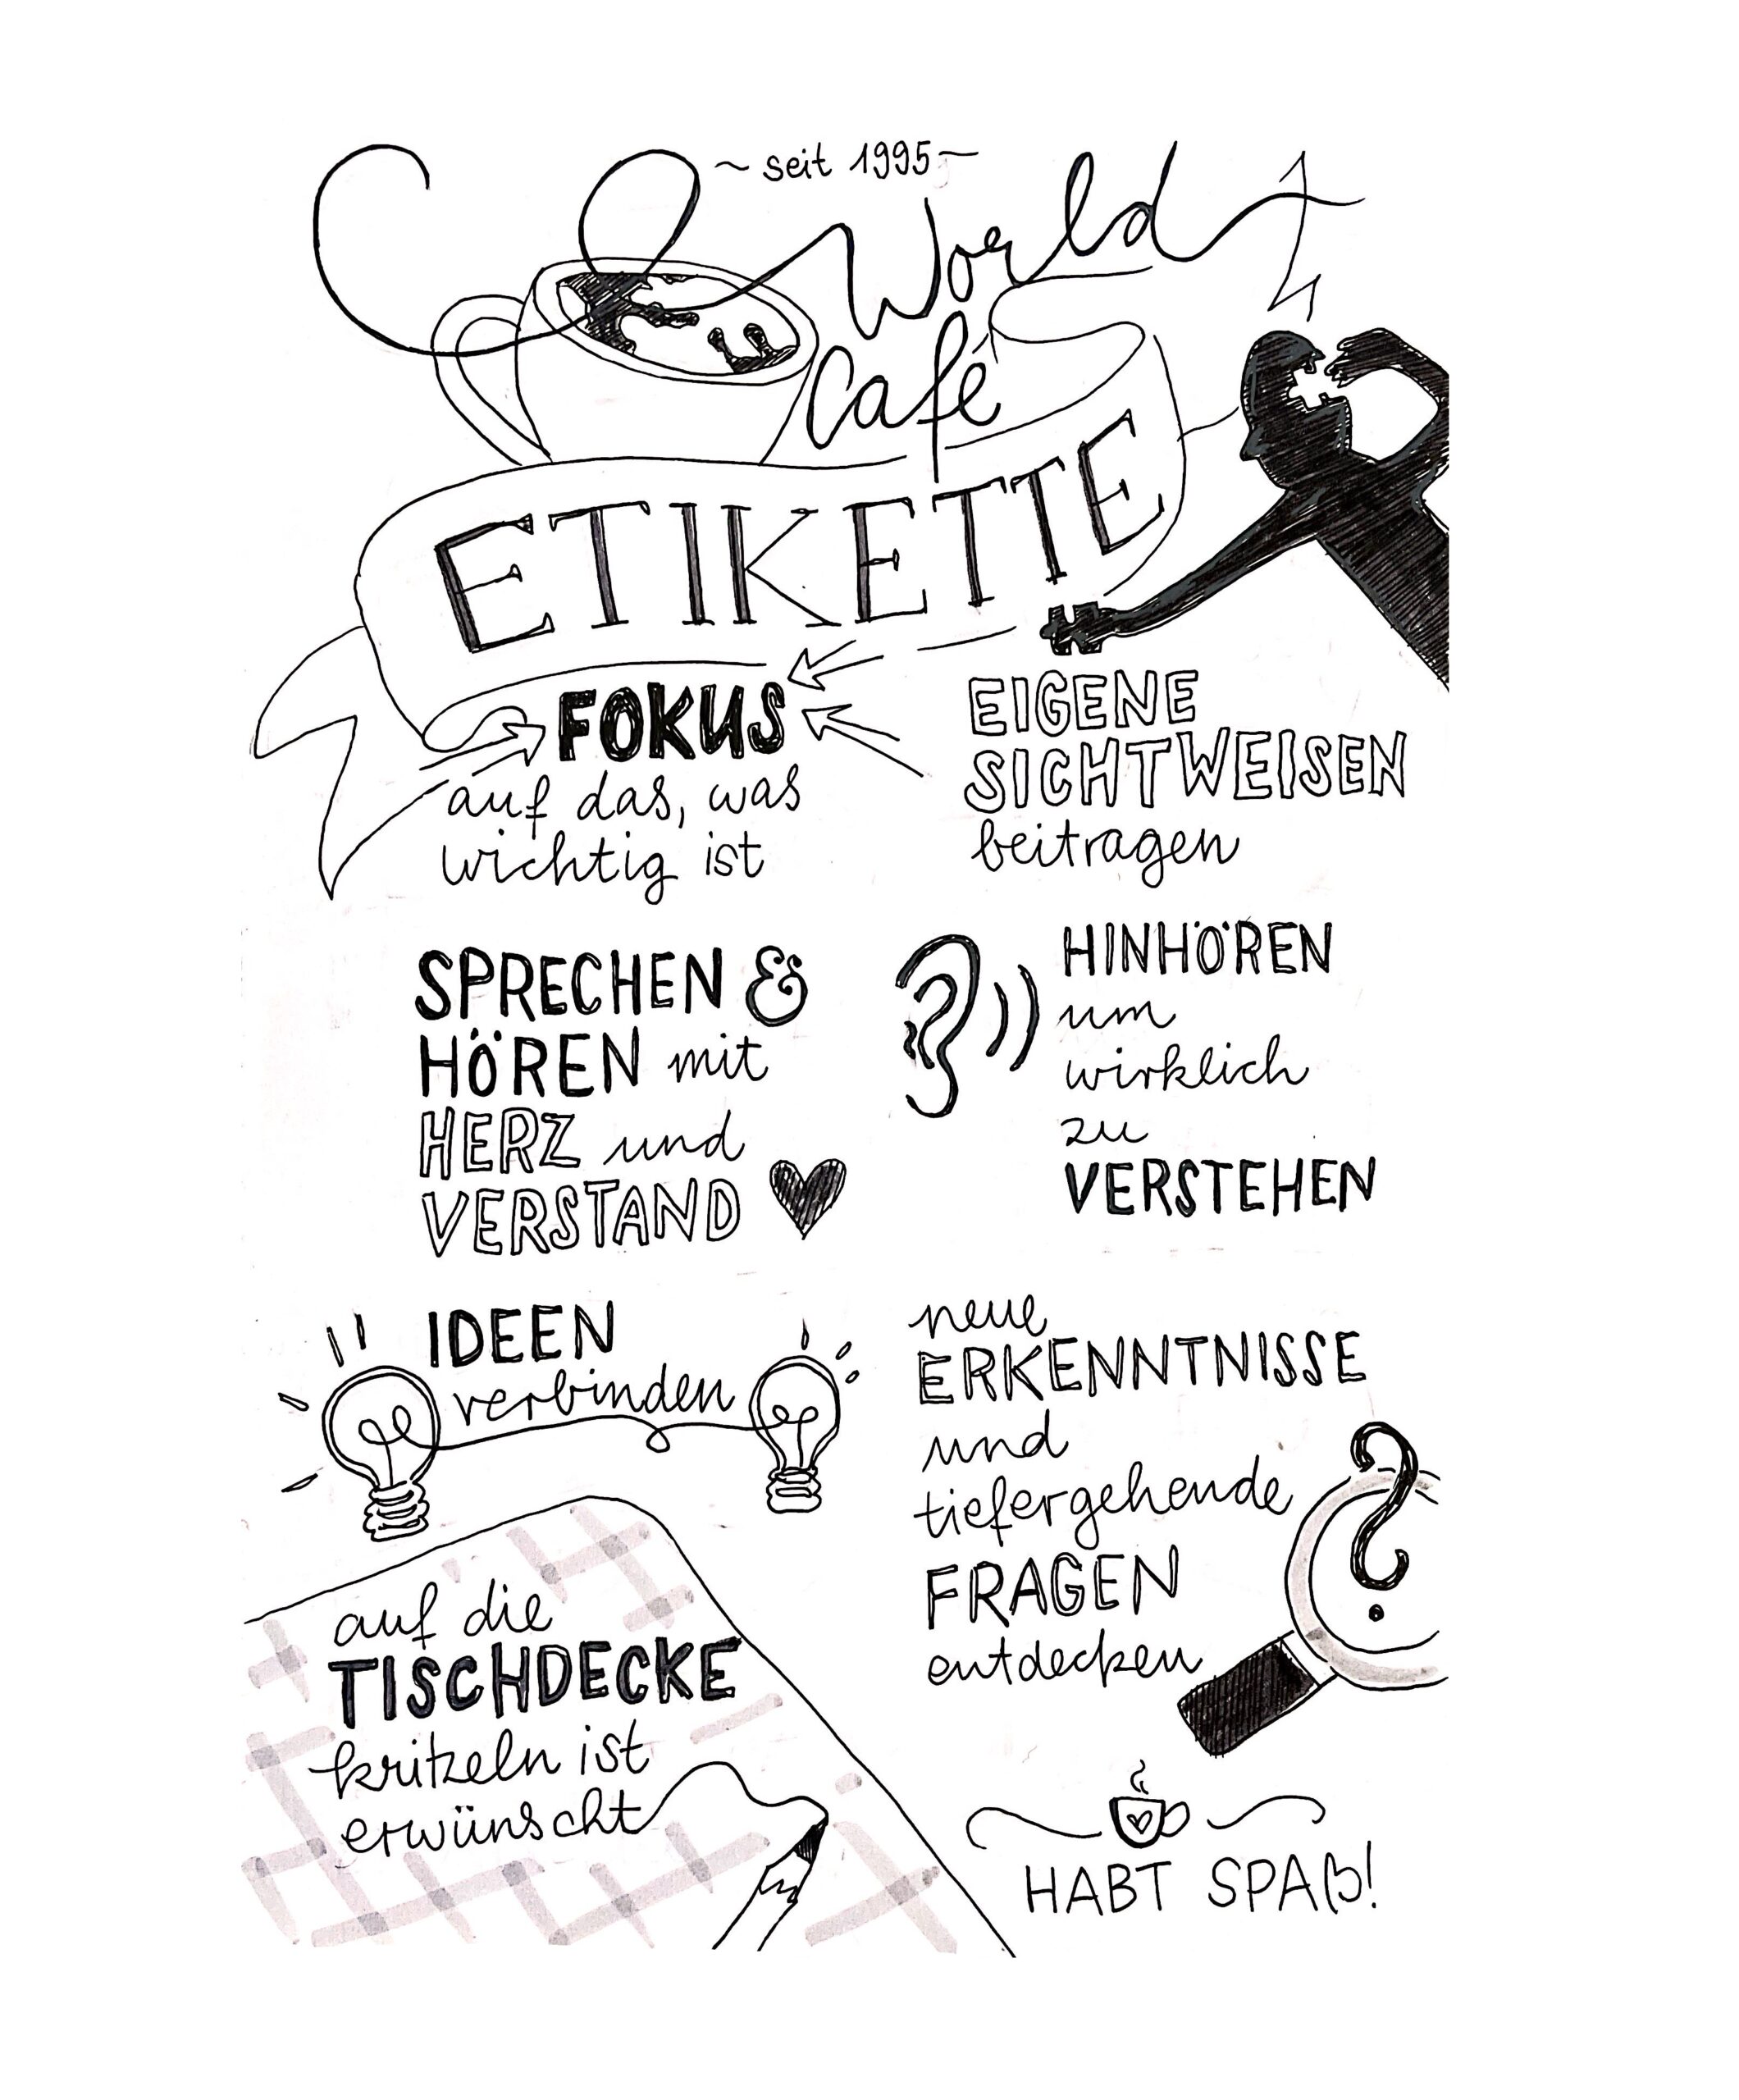 ~ seit 1995 ~
World
Café
ETIKETTE
FOKUS
auf das, was
wichtig ist
EIGENE
SICHTWEISEN
beitragen
SPRECHEN &
HÖREN mit
HERZ und
VERSTAND
HINHÖREN
um
wirklich
zu
VERSTEHEN
IDEEN
verbinden
neue
ERKENNTNISSE
und
tiefergehende
FRAGEN
entdecken
?
auf die
TISCHDECKE
kritzeln ist
erwünscht
HABT SPAß!